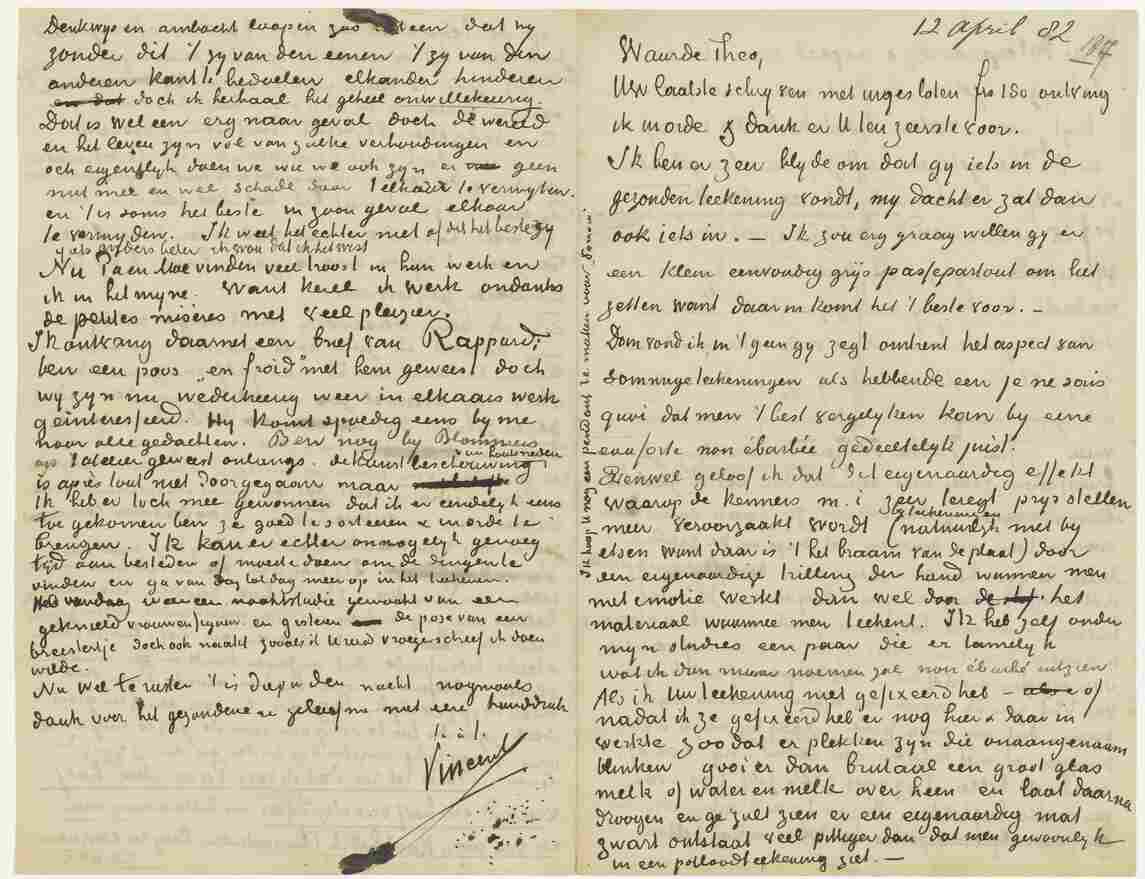 Denkwijs en ambacht loopen zoo uiteen dat wij
zonder dit 't zy van den eenen 't zy van den
anderen kant te bedoelen elkander hinderen
en dat doch ik herhaal het geheel onwillekeurig.
Dat is wel een erg naar geval doch de wereld
en het leven zyn vol van zulke verhoudingen en
och eigenlyk doen we wie we ook zyn er geen
nut mee en wel schade door 't elkaar te verwyten.
en 't is soms het beste in zoon geval elkaar
te vermyden. Ik weet het echter niet of dit het beste zy
of iets anders beter ik wou dat ik het wist
Nu Pa en Moe vinden veel troost in hun werk en
ik in het myne. Want kerel ik werk ondanks
de petites misères met veel pleizier.
Ik ontvang daarnet een brief van Rappard.
ben een poos „en froid" met hem geweest doch
wy zyn nu wederkeerig weer in elkaars werk
geinteresseerd. Hy komt spoedig eens by me
naar alle gedachten. Ben nog by Blommers
op 't atelier geweest onlangs. de kunstbeschouwing van houtsneden
is après tout niet doorgegaan maar
Ik heb er toch mee gewonnen dat ik er eindelyk eens
toe gekomen ben ze goed te sorteeren & in orde te
brengen. Ik kan er echter onmogelyk genoeg
tyd aan besteden of moeite doen om de dingen te
vinden en ga van dag tot dag meer op in het teekenen.
Heb vandaag weer een naaktstudie gemaakt van een
geknield vrouwenfiguur en gisteren de pose van een
breistertje doch ook naakt zooals ik U reeds vroeger schreef ik doen
wilde.
Nu wel te rusten 't is diep in den nacht nogmaals
dank voor het gezondene en geloof me met een handdruk
t. à t.
Vincent
12 april 82
Waarde Theo,
Uw laatste schryven met ingesloten frs 150 ontving
ik in orde & dank er U ten zeerste voor.
Ik ben er zeer blyde om dat gy iets in de
gezonden teekening vondt, my dacht er zat dan
ook iets in. — Ik zou erg graag willen gy er
een klein eenvoudig grijs passepartout om liet
zetten want daarin komt het 't beste voor. —
Dom vond ik in 't geen gy zegt omtrent het aspect van
sommige teekeningen als hebbende een je ne sais
quoi dat men 't best vergelyken kan by eene
eauforte non ébarbée gedeeltelyk juist.
Evenwel geloof ik dat dit eigenaardig effekt
waarop de kenners m. i. zeer teregt prys stellen
meer veroorzaakt wordt by teekeningen (natuurlyk niet by
etsen want daar is 't het braam van de plaat) door
een eigenaardige trilling der hand wanneer men
met emotie werkt dan wel door de stof het
materiaal waarmee men teekent. Ik heb zelf onder
myn studies een paar die er tamelyk
wat ik dan maar noemen zal non ébarbé uitzien
Als ik Uw teekening niet gefixeerd heb – of
nadat ik ze gefixeerd heb er nog hier & daar in
werkte zoodat er plekken zyn die onaangenaam
blinken gooi er dan brutaal een groot glas
melk of water en melk over heen en laat daarna
droogen en ge zult zien er een eigenaardig mat
zwart ontstaat veel pittiger dan dat men gewoonlyk
in een potloodteekening ziet. —
Ik hoop U nog een pendant te maken voor Sorrow